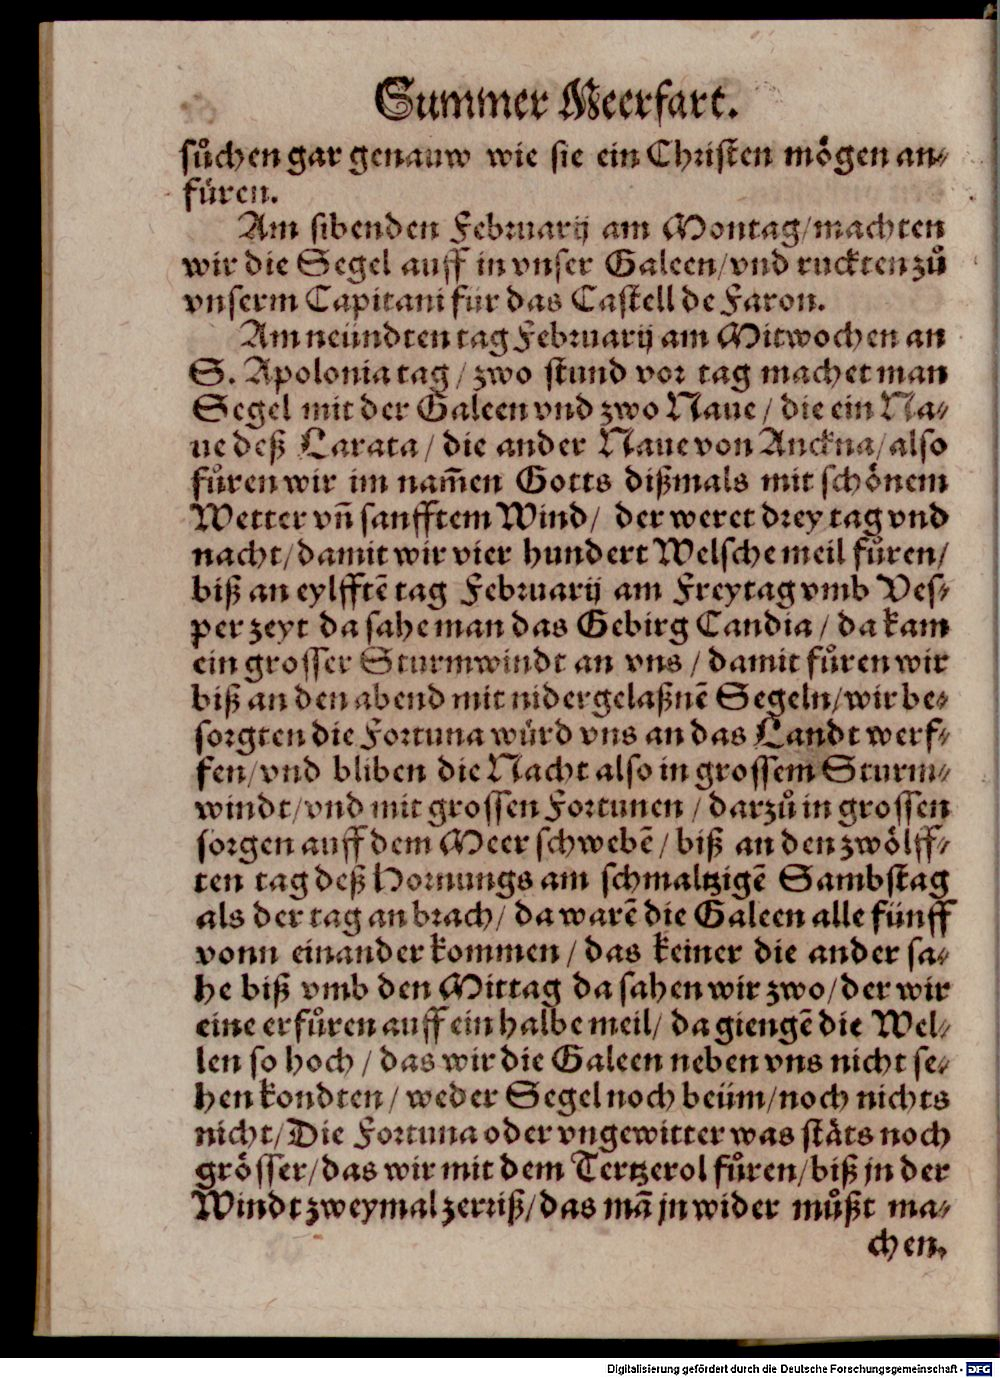 Summer Meerfart.
sůchen gar genauw wie sie ein Christen mögen an-
füren.
Am sibenden Februarij am Montag/machten
wir die Segel auff in vnser Galeen/vnd ruckten zů
vnserm Capitani für das Castell de Faron.
Am neündten tag Februarij am Mitwochen an
S. Apolonia tag/ zwo stund vor tag machet man
Segel mit der Galeen vnd zwo Naue/ die ein Na-
ue deß Larata/ die ander Naue von Anckna/also
fůren wir im nam̃en Gotts dißmals mit schönem
Wetter vn̄ sanfftem Wind/ der weret drey tag vnd
nacht/damit wir vier hundert Welsche meil fůren/
biß an eylfftē tag Februarij am Freytag vmb Ves-
per zeyt da sahe man das Gebirg Candia/ da kam
ein grosser Sturmwindt an vns/ damit fůren wir
biß an den abend mit nidergelaßnē Segeln/wir be-
sorgten die Fortuna würd vns an das Landt werf-
fen/vnd bliben die Nacht also in grossem Sturm-
windt/vnd mit grossen Fortunen/ darzů in grossen
sorgen auff dem Meer schwebē/ biß an den zwölff-
ten tag deß Hornungs am schmaltzigē Sambstag
als der tag an brach/ da warē die Galeen alle fünff
vonn einander kommen/ das keiner die ander sa-
he biß vmb den Mittag da sahen wir zwo/der wir
eine erfůren auff ein halbe meil/ da giengē die Wel-
len so hoch/ das wir die Galeen neben vns nicht se-
hen kondten/ weder Segel noch beüm/noch nichts
nicht/Die Fortuna oder vngewitter was stäts noch
grösser/das wir mit dem Tertzerol fůren/biß jn der
Windt zweymal zerriß/das mā jn wider můßt ma-
chen.
Digitalisierung gefördert durch die Deutsche Forschungsgemeinschaft - DFG